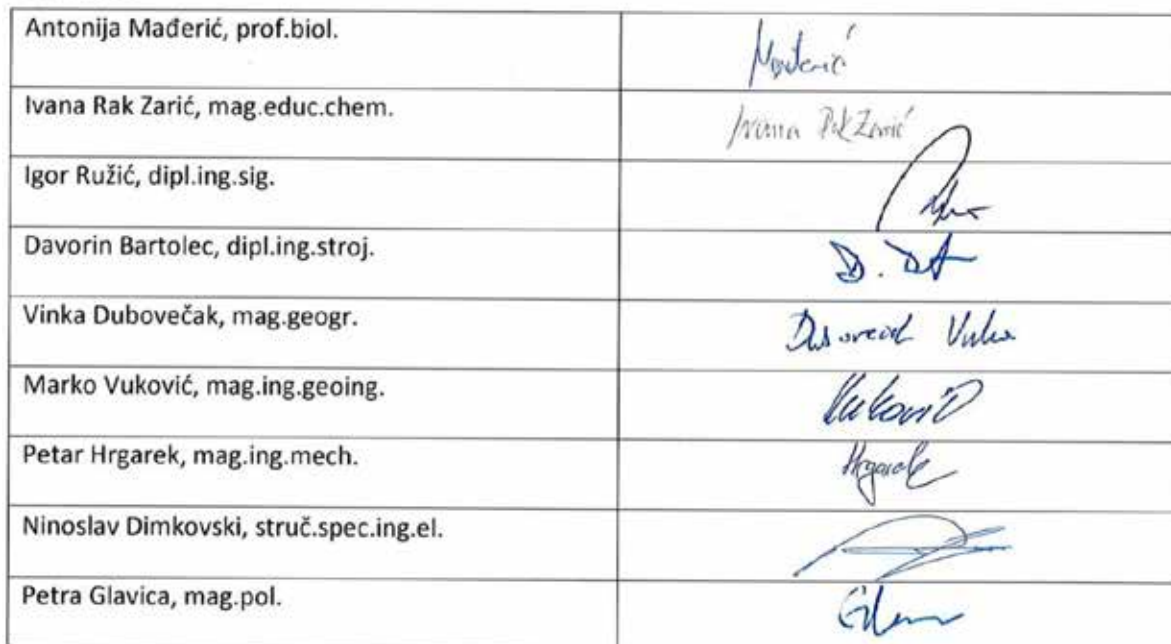 Antonija Mađerić, prof.biol.
Mađerić
Ivana Rak Zarić, mag.educ.chem.
Ivana Rak Zarić
Igor Ružić, dipl.ing.sig.
Davorin Bartolec, dipl.ing.stroj.
Vinka Dubovečak, mag.geogr.
Marko Vuković, mag.ing.geoing.
Vuković
Petar Hrgarek, mag.ing.mech.
Hrgarek
Ninoslav Dimkovski, struč.spec.ing.el.
Petra Glavica, mag.pol.